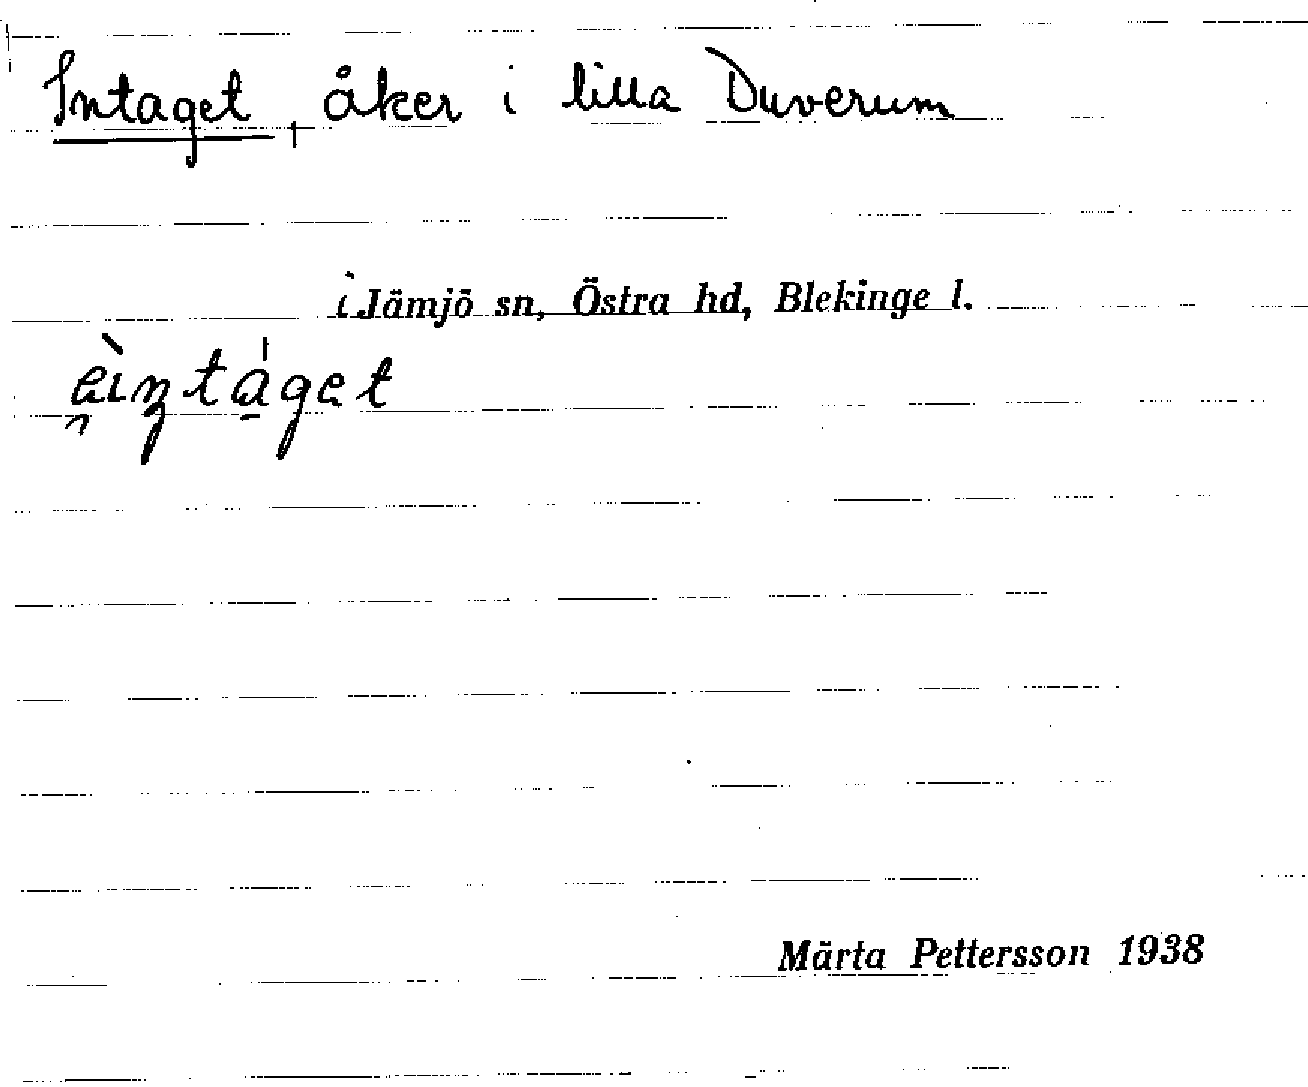 Intaget, åker i lilla Duverum
i Jämjö sn, Östra hd, Blekinge l.
ei̯nta̠get
Märta Pettersson 1938